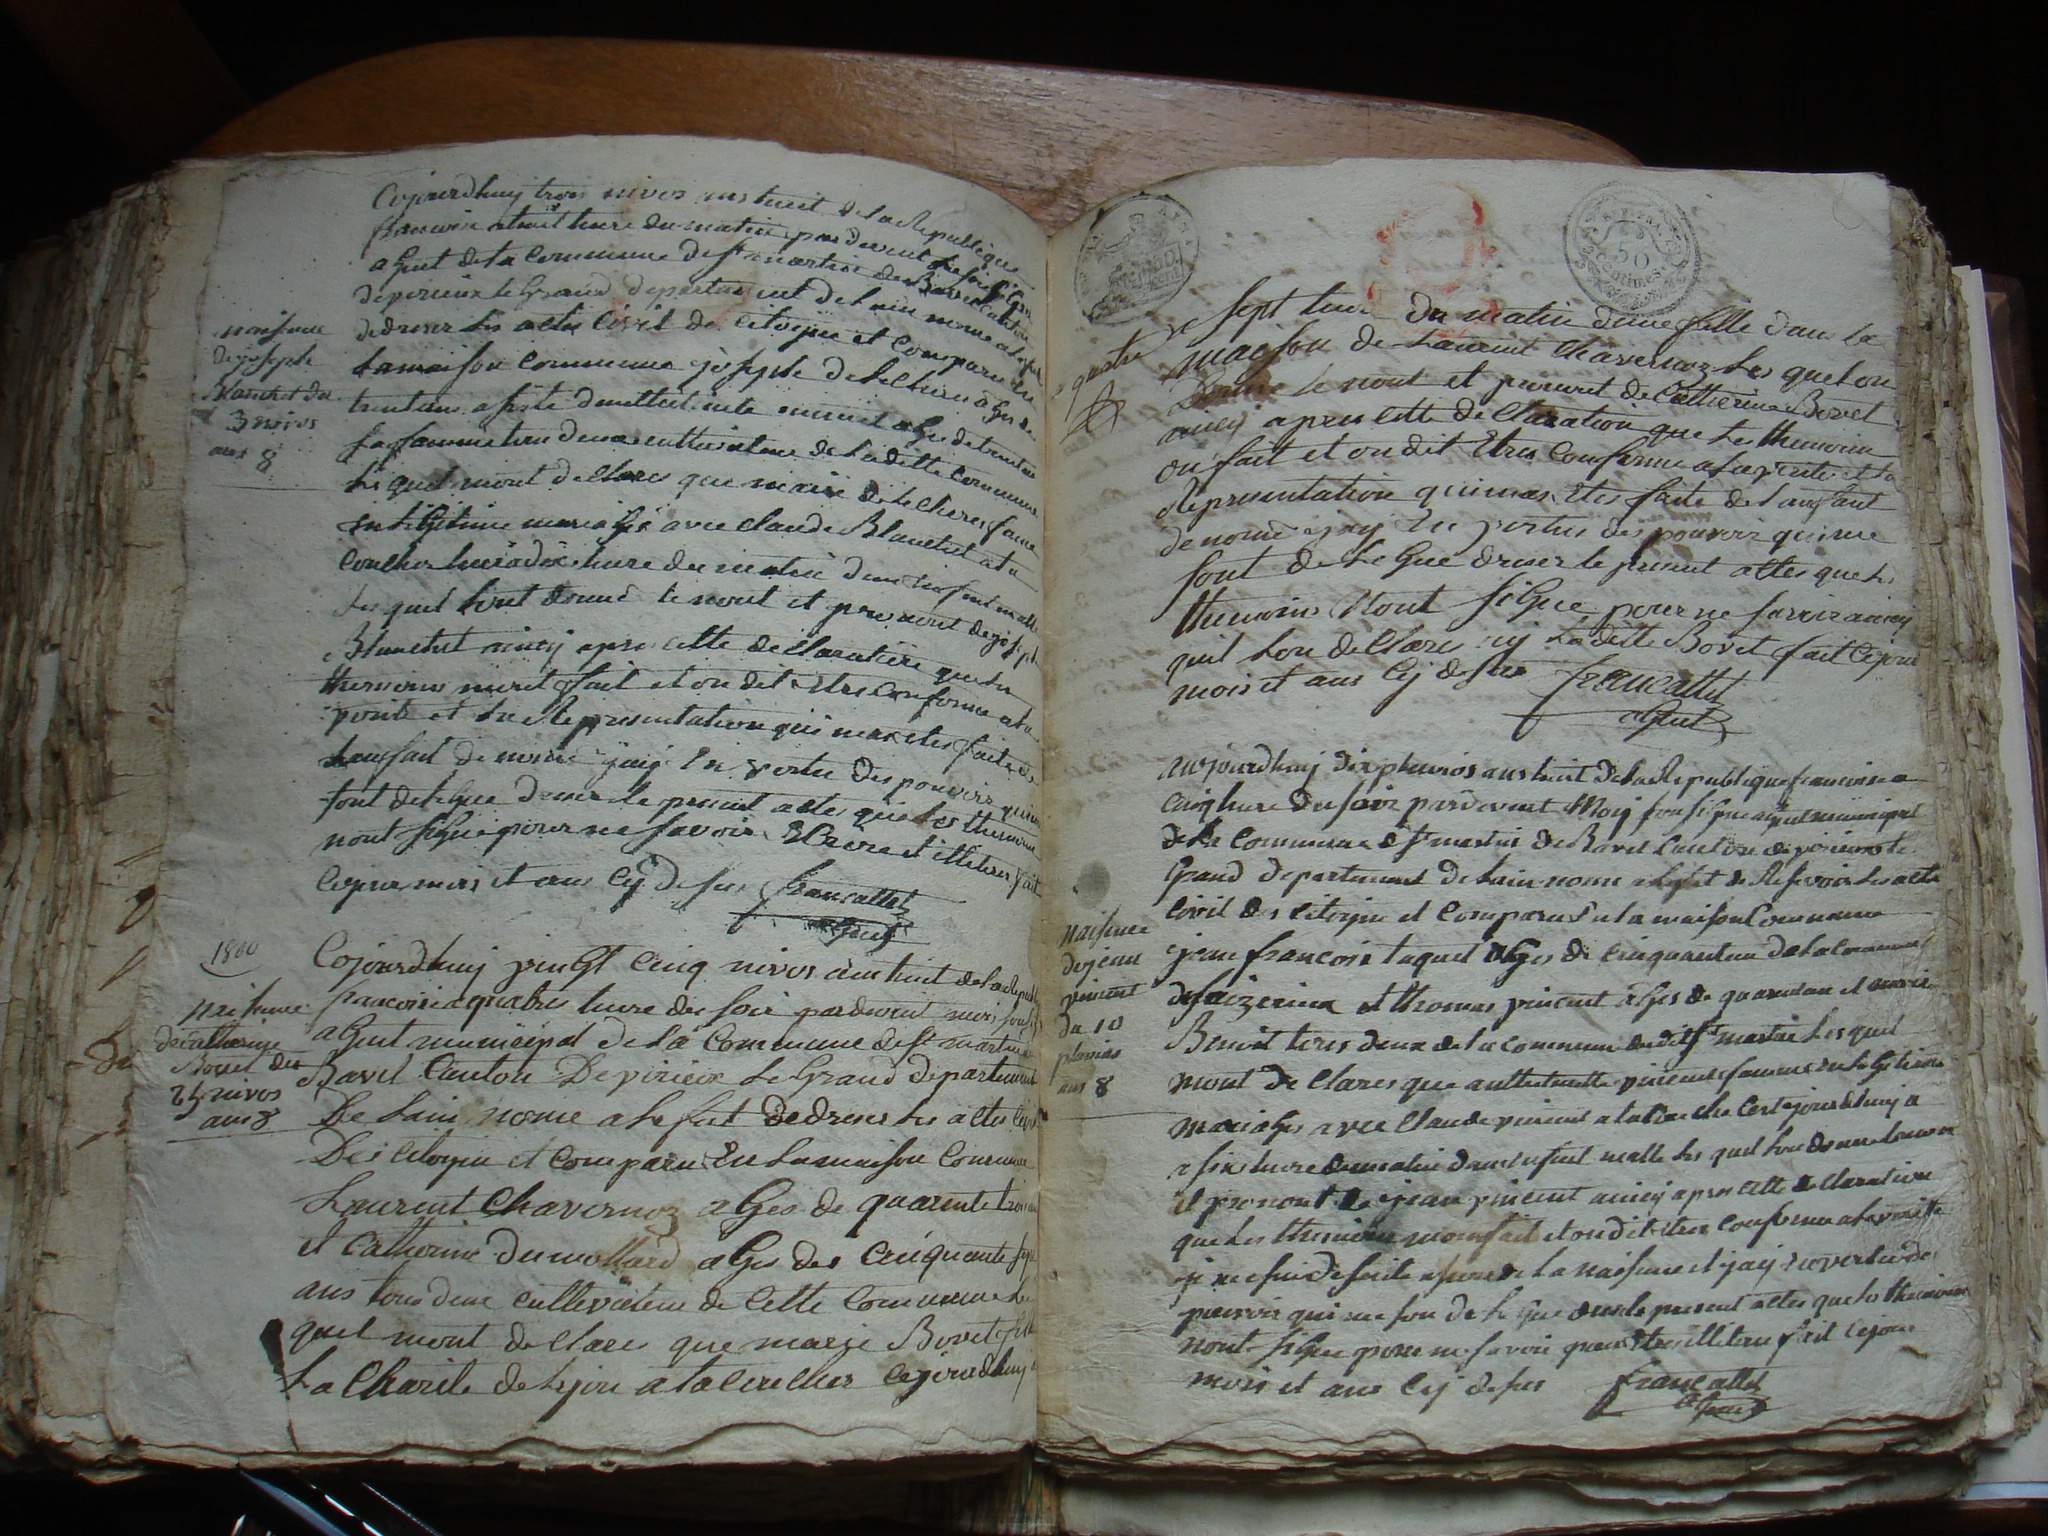 Cojourdhuij trois nivos ans huit de la Republique
francoise a huit heure du matin par devent
agent de la commune de st martin de Bavel Canton
de virieux le Grand departement de lain nome
dedreser les actes Civil de Citoijin et Comparu En
la maison commune joseph
trentans
la somme tous deux cultivateur de la ditte commune
les quel mont declares que marie
En legitime mariages avec Claude Blanchet
Couches heure du matin dun enfent malle
les quel lont donné le nom et prenont de joseph
Blanchet aincij apres cette declaration que les
themoins mont fait et on dit Etres Conforme a la
verite et la Representation qui mas etes faite de
lanfant de nomé jaij En vertu des pouvoir qui me
sont delegue dreser le present actes que les themoins
nont signe pour ne savoir Ecrire et illeteres fait
Cejour mois et ans Cij desus francallet
agent
naisence
de joseph
Blanchet du
3 nivos
ans 8
1800
Cojourdhuij vingt Cinq nivos ans huit de la Republique
francoise a quatres heure du soir pardevent moij
agent municipal de la Commune de st martin
Bavel Canton De virieux le Grand departement
De lain nome a le fet dedreser les actes Civil
Des Citoijin et Comparu En la maison Commune
Laurent Chavernoz ages de quarente trois
et Catherine dumollard ages des Cinquante sept
ans tous deux cultivateur de Cette Commune les
quel mont declares que marie Bovet fille
a la Charite de lijon a tacoucher Cejourdhuij a
naisence
de catherine
Bovet du
25 nivos
ans 8
quatre
sept heure du matin dune fille dans la
maison de Laurent Chavernoz les quel on
Donné le nom et prenont de Catherine Bovet
aincij apres cette declaration que les themoins
on fait et on dit Etres Conforme a la verite et la
Representation qui mas Etes faite de lanfant
de nomé jaij En vertus des pouvoir qui me
sont delegue dreser le present actes que les
themoins Nont signe pour ne savoir aincij
quil lon declares nij la ditte Bovet fait Cejour
mois et ans Cij desus francallet
agent
50
centimes
aujourdhuij dix pluvios ans huit de la Republique francoise a
Cinq heure du soir pardevent Moij sousigne agent municipal
de la Commune de st martin de Bavel Canton de virieux le
Grand departement de lain nome a lefet de Resevoir les acte
Civil des Citoijin et Comparus En la maison Commune
jean francois taquet ages de Cinquantan de la Commune
de et thomas vincent ages de quarentan et marie
Benoit tous deux de la commune du dit st martin les quel
mont declares que vincent famme En legitime
mariages avec Claude vincent a tacouche Cest ejourdhuij a
a six heure du matin dunenfant malle les quel lon donne le nom
et prenont de jean vincent aincij apres cette declaration
que les themoins mon fait et on dit etres conforme a la verite
je me suis de suite asure de la naisence et jaij En vertu des
pouvoir qui me son delegue dresé le present actes que les themoins
nont signe pour ne savoir pour Etres illeteres fait Cejour
mois et ans Cij desus francallet
agent
naisence
de jean
vincent
du 10
pluvios
ans 8